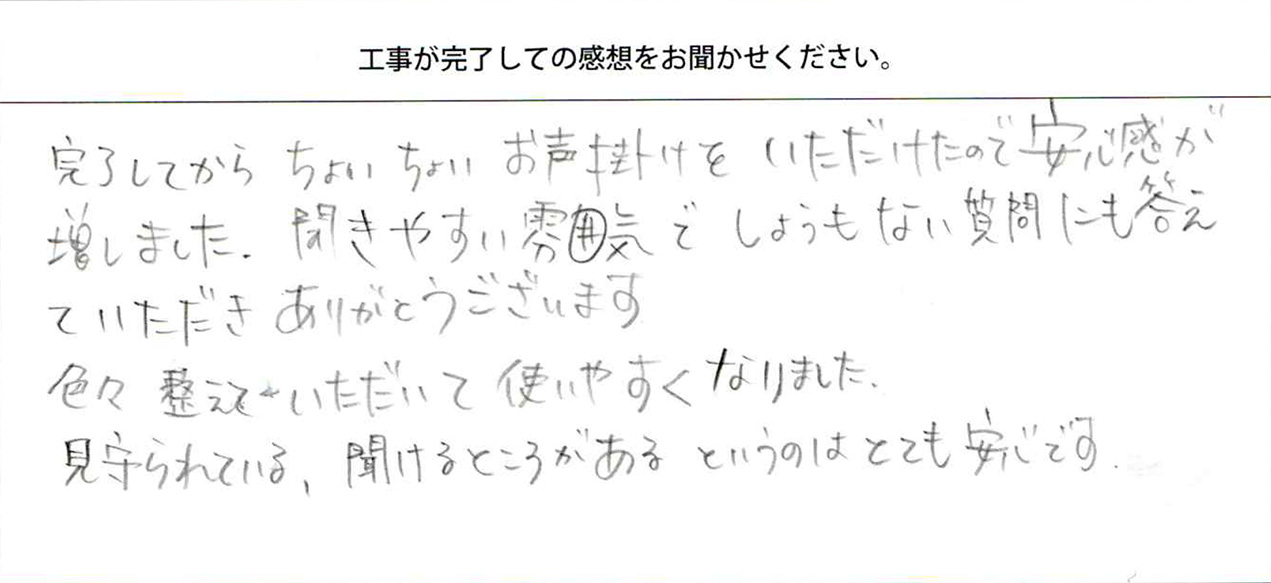 工事が完了しての感想をお聞かせください。
完了してから ちょいちょい お声掛けを いただけたので安心感が
増しました. 聞きやすい雰囲気で しょうもない質問にも答え
ていただき ありがとうございます
色々 整えて いただいて 使いやすく なりました.
見守られている, 聞けるところがある というのは とても 安心です.